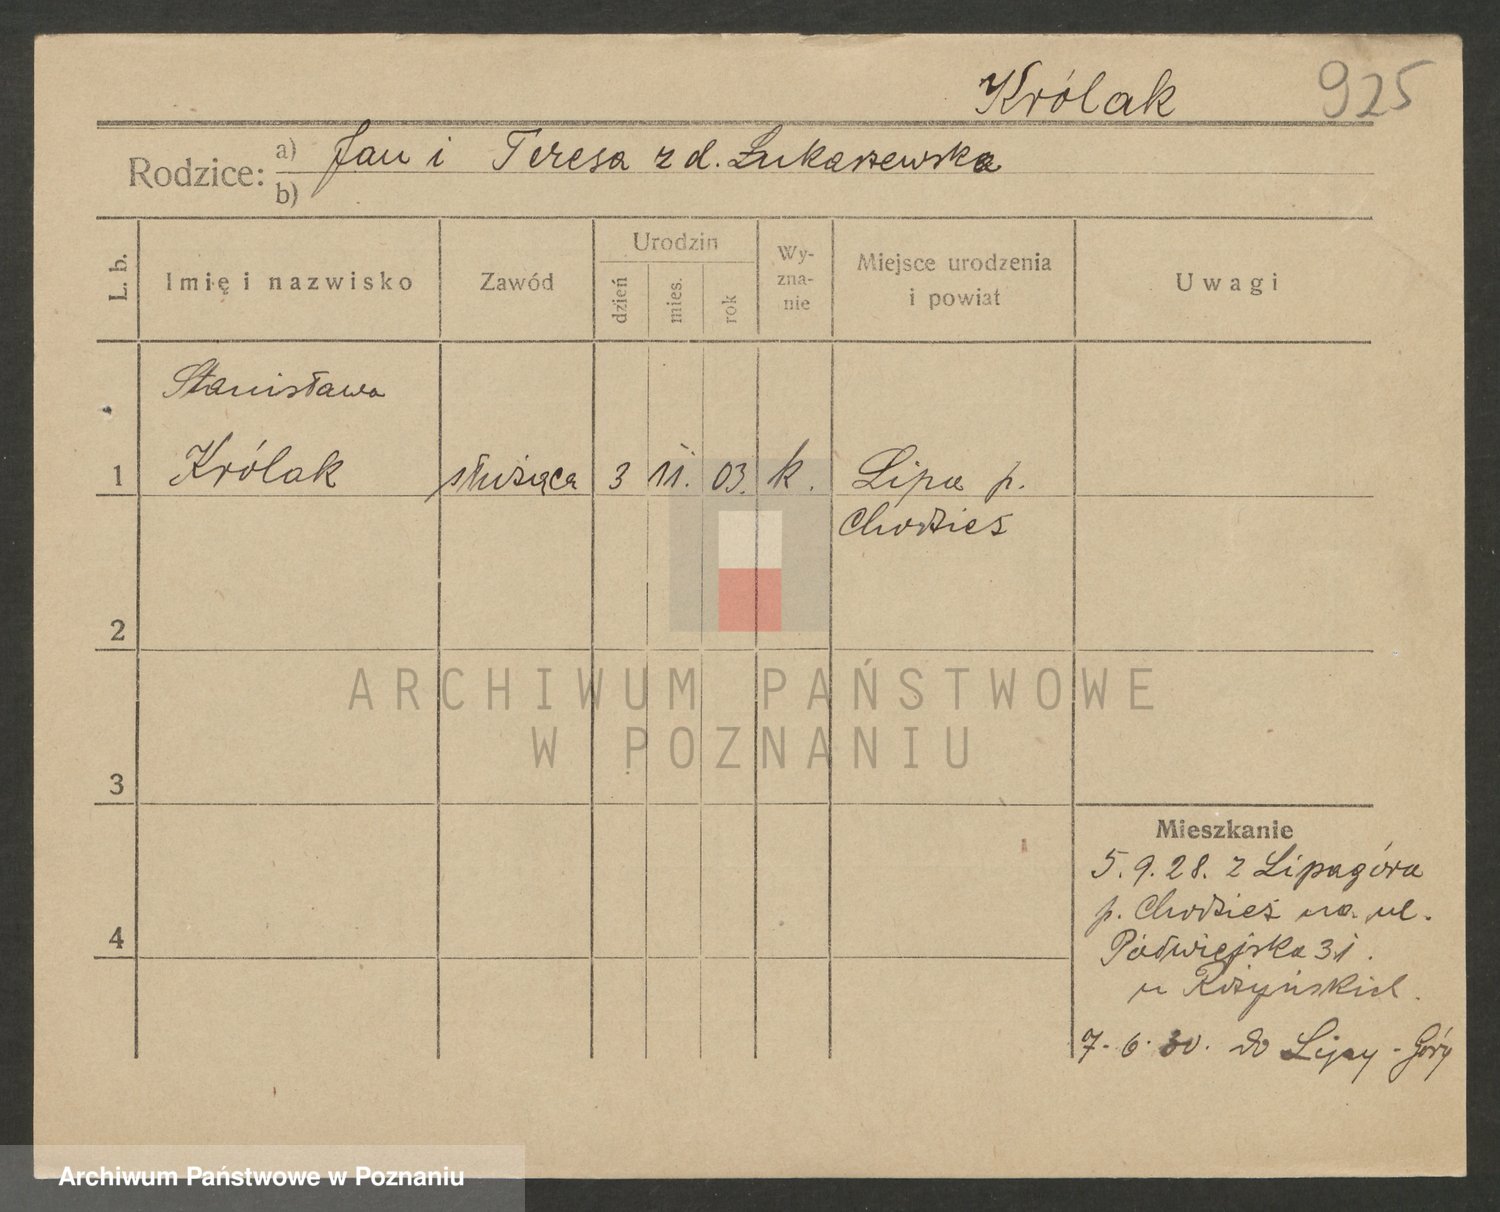 Królak 925
Rodzice: a) Jan i Teresa z d. Łukaszewska
b)
L. b. Imię i nazwisko Zawód Urodzin dzień mies. rok Wy-
zna-
nie Miejsce urodzenia
i powiat Uwagi
Stanisława
1 Królak służąca 3 11. 03. k. Lipa p.
Chodzież
2
3
4
Mieszkanie
5. 9. 28. z Lipagóra
p. Chodzież na ul.
Podwiejska 31.
u
7. 6. 30. do Lipy - Góry
ARCHIWUM PAŃSTWOWE
W POZNANIU
Archiwum Państwowe w Poznaniu